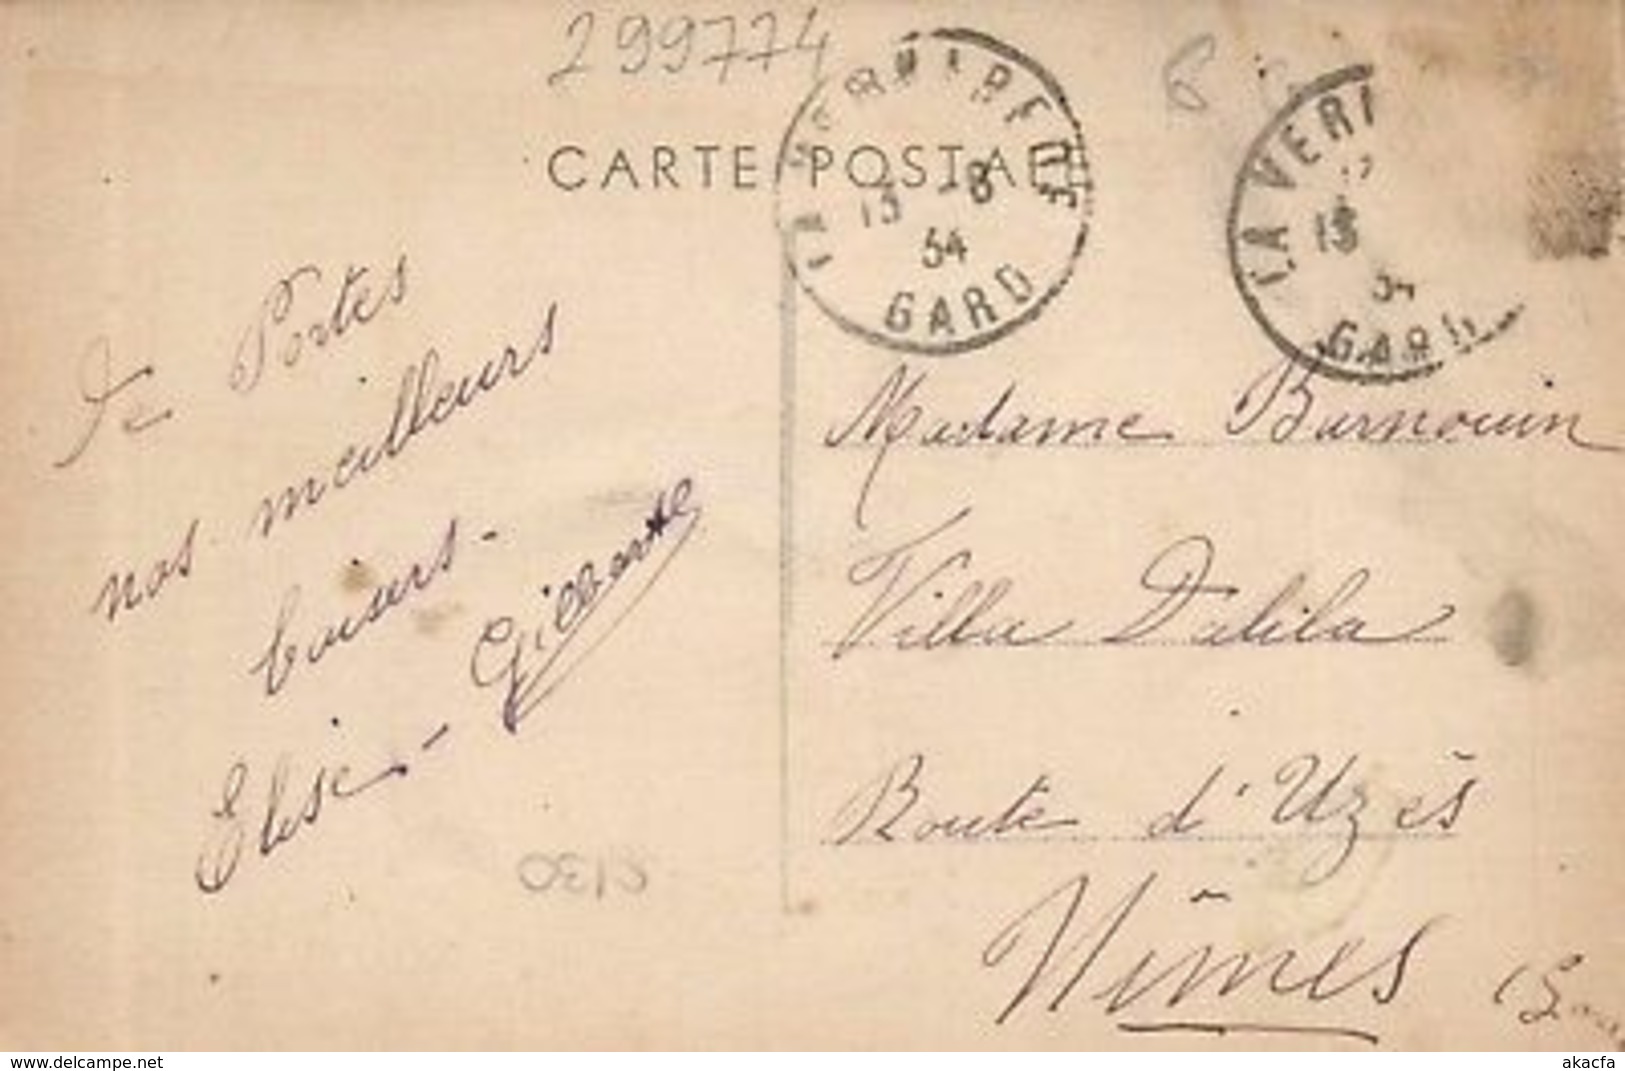 299774
CARTE POSTALE
LA VERNAREDE
13 -8
34
GARD
LA VER
13
34
GARD
De Portes
nos meilleurs
baisers -
Elise - Gilberte
Madame Barnouin
Villa Dalila
Route d'Uzès
Nîmes
visit our website for more
akacfa